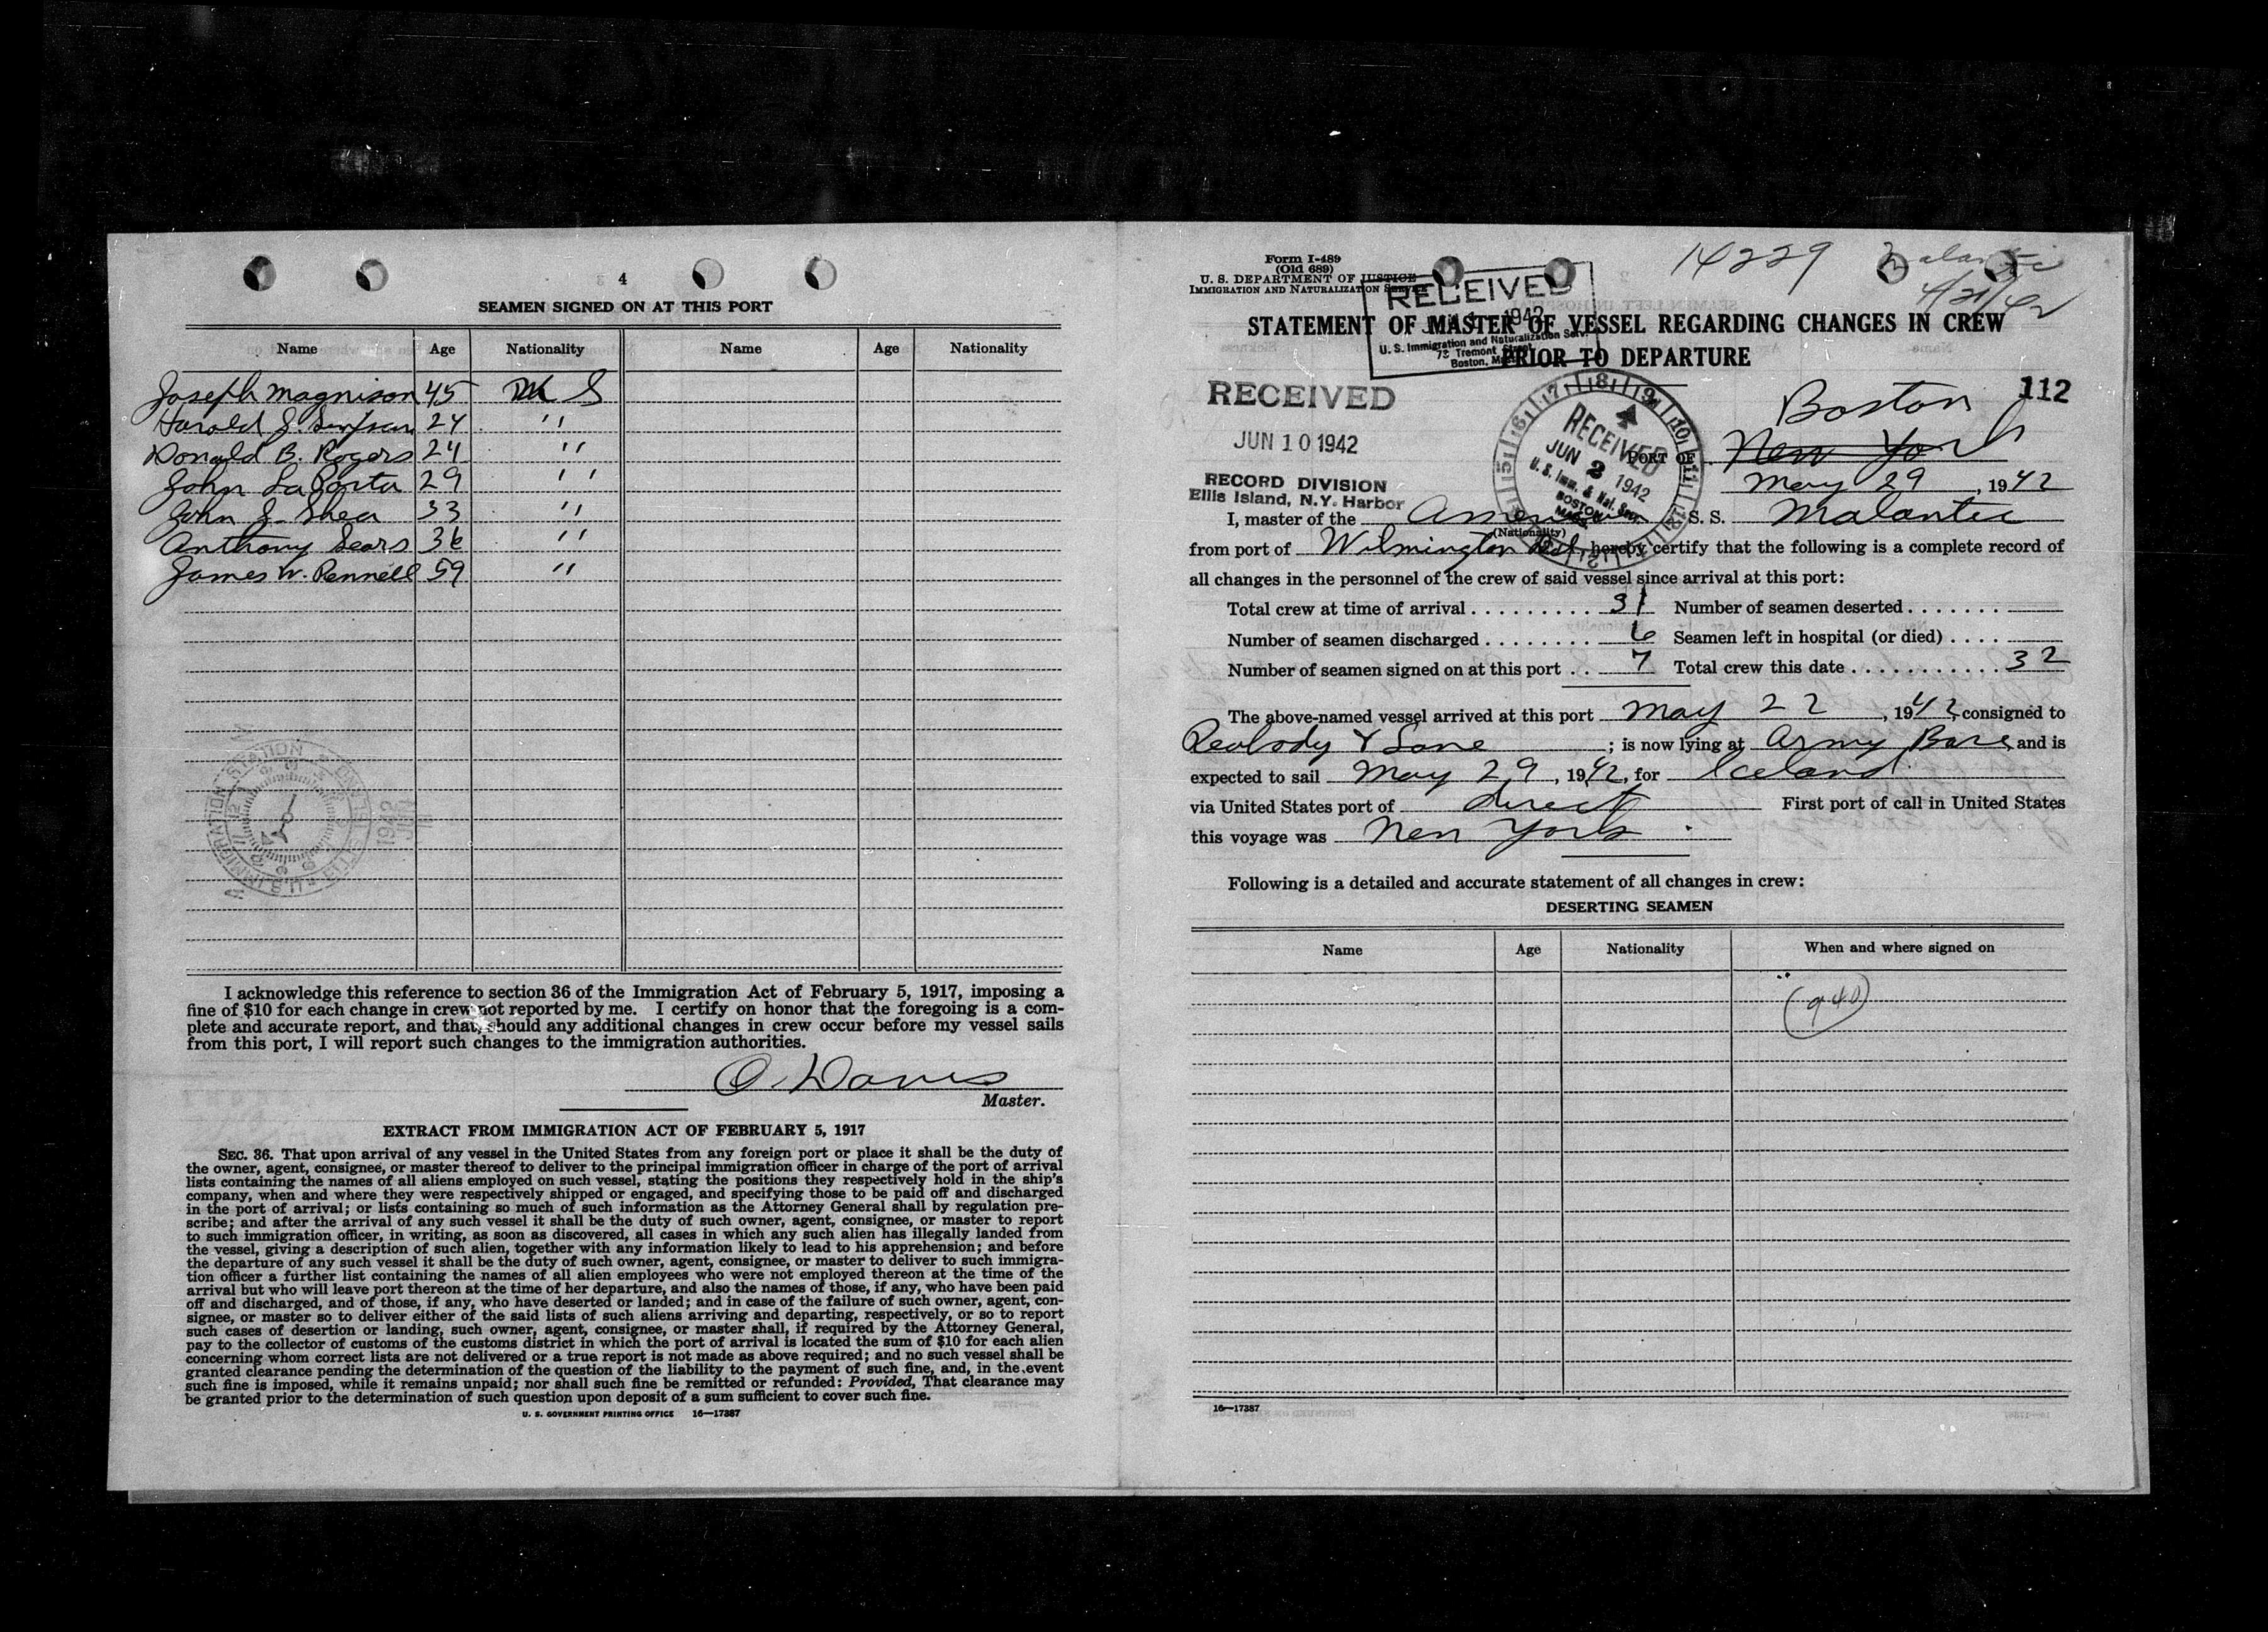 4
SEAMEN SIGNED ON AT THIS PORT
Name Age Nationality Name Age Nationality
Joseph Magnison 45 U S
Harold J. 24 "
Donald B. Rogers 24 "
John LaPorta 29 "
John J. Shea 33 "
Anthony Sears 36 "
James W. Pennell 59 "
I acknowledge this reference to section 36 of the Immigration Act of February 5, 1917, imposing a
fine of $10 for each change in crew not reported by me. I certify on honor that the foregoing is a com-
plete and accurate report, and that, should any additional changes in crew occur before my vessel sails
from this port, I will report such changes to the immigration authorities.
O. Davis
Master.
EXTRACT FROM IMMIGRATION ACT OF FEBRUARY 5, 1917
SEC. 36. That upon arrival of any vessel in the United States from any foreign port or place it shall be the duty of
the owner, agent, consignee, or master thereof to deliver to the principal immigration officer in charge of the port of arrival
lists containing the names of all aliens employed on such vessel, stating the positions they respectively hold in the ship's
company, when and where they were respectively shipped or engaged, and specifying those to be paid off and discharged
in the port of arrival; or lists containing so much of such information as the Attorney General shall by regulation pre-
scribe; and after the arrival of any such vessel it shall be the duty of such owner, agent, consignee, or master to report
to such immigration officer, in writing, as soon as discovered, all cases in which any such alien has illegally landed from
the vessel, giving a description of such alien, together with any information likely to lead to his apprehension; and before
the departure of any such vessel it shall be the duty of such owner, agent, consignee, or master to deliver to such immigra-
tion officer a further list containing the names of all alien employees who were not employed thereon at the time of the
arrival but who will leave port thereon at the time of her departure, and also the names of those, if any, who have been paid
off and discharged, and of those, if any, who have deserted or landed; and in case of the failure of such owner, agent, con-
signee, or master so to deliver either of the said lists of such aliens arriving and departing, respectively, or so to report
such cases of desertion or landing, such owner, agent, consignee, or master shall, if required by the Attorney General,
pay to the collector of customs of the customs district in which the port of arrival is located the sum of $10 for each alien
concerning whom correct lists are not delivered or a true report is not made as above required; and no such vessel shall be
granted clearance pending the determination of the question of the liability to the payment of such fine, and, in the event
such fine is imposed, while it remains unpaid; nor shall such fine be remitted or refunded: Provided, That clearance may
be granted prior to the determination of such question upon deposit of a sum sufficient to cover such fine.
U. S. GOVERNMENT PRINTING OFFICE 16—17387
Form I-489
(Old 689)
U. S. DEPARTMENT OF JUSTICE
IMMIGRATION AND NATURALIZATION SERVICE
14229 Malantic
4/21/42
RECEIVED
1942
U. S. Immigration and Naturalization Serv.
73 Tremont Street
Boston, Mass.
STATEMENT OF MASTER OF VESSEL REGARDING CHANGES IN CREW
PRIOR TO DEPARTURE
112
RECEIVED
JUN 10 1942
RECORD DIVISION
Ellis Island, N.Y. Harbor
RECEIVED
JUN 2 1942
U. S. Imm. & Nat. Serv.
BOSTON
MASS.
Boston
PORT OF New York
May 29, 1942
I, master of the American S. S. Malantic
(Nationality)
from port of Wilmington Del, hereby certify that the following is a complete record of
all changes in the personnel of the crew of said vessel since arrival at this port:
Total crew at time of arrival 31 Number of seamen deserted
Number of seamen discharged 6 Seamen left in hospital (or died)
Number of seamen signed on at this port 7 Total crew this date 32
The above-named vessel arrived at this port May 22, 1942, consigned to
Peabody & Lane; is now lying at Army Base and is
expected to sail May 29, 1942, for Iceland
via United States port of direct First port of call in United States
this voyage was New York.
Following is a detailed and accurate statement of all changes in crew:
DESERTING SEAMEN
Name Age Nationality When and where signed on
(940)
16—17387